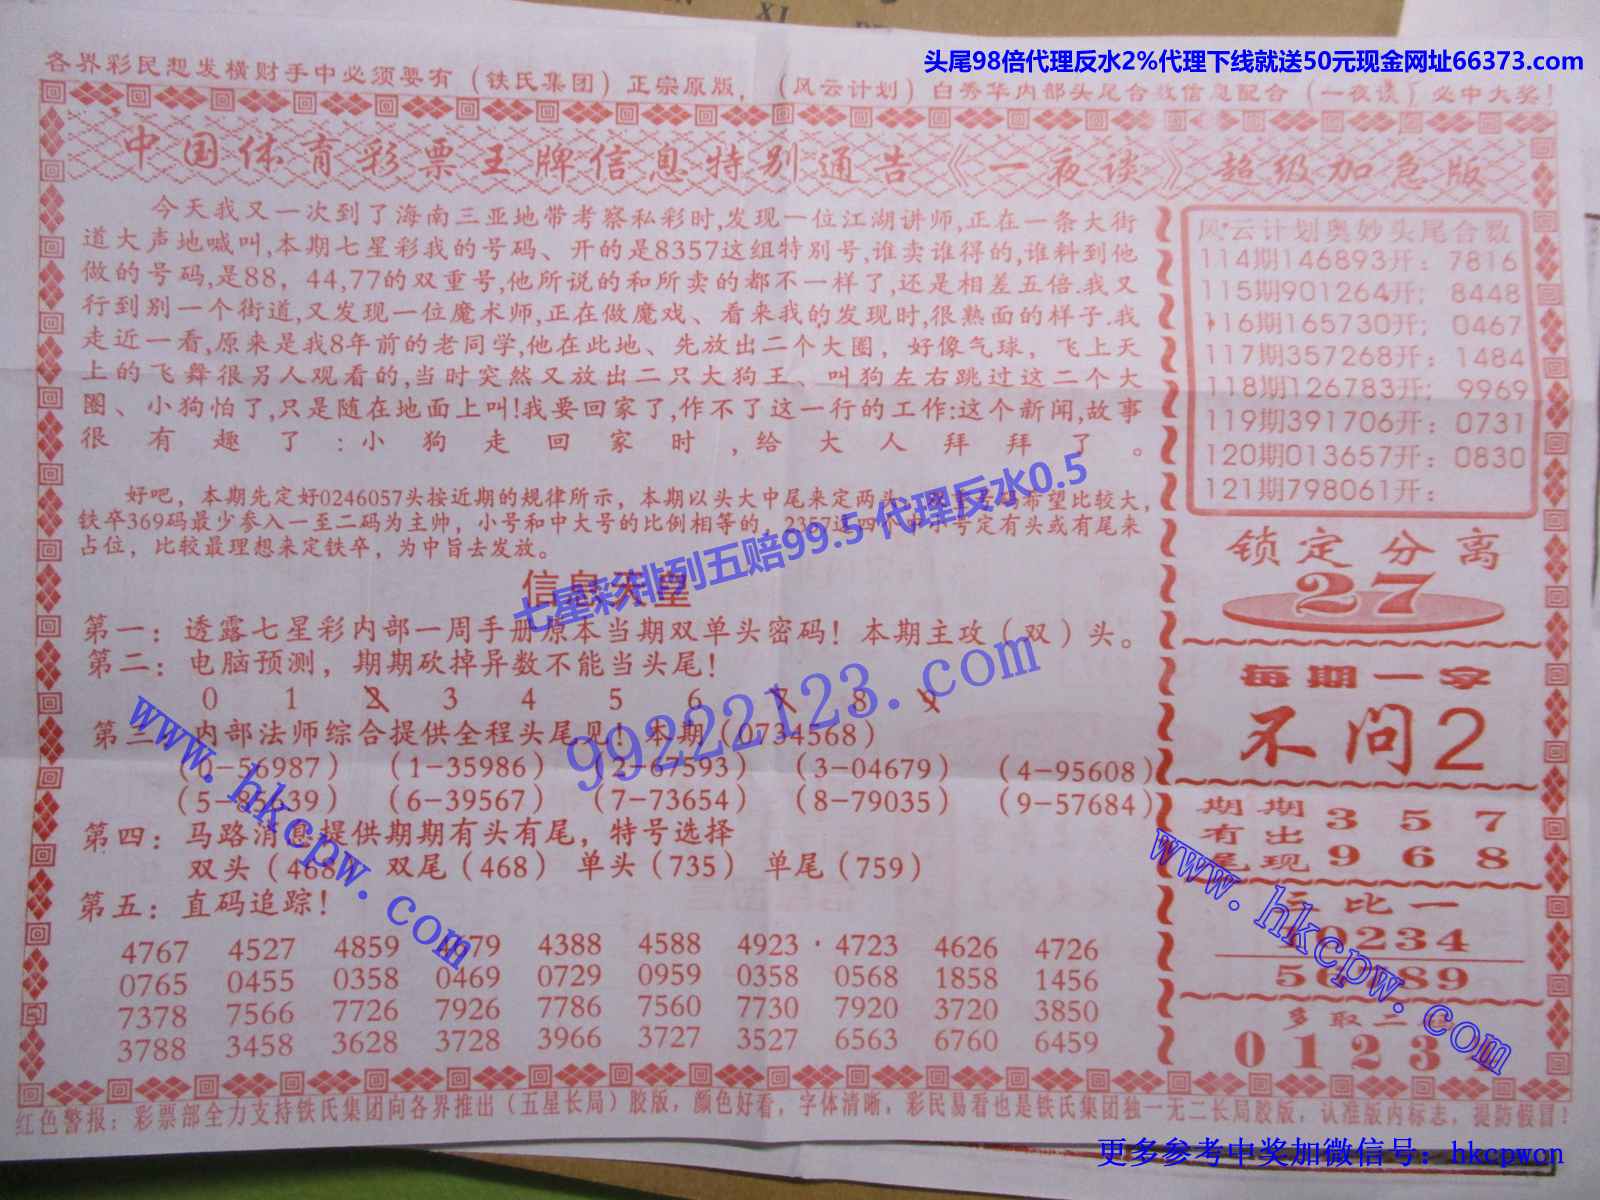 头尾98倍代理反水2%代理下线就送50元现金网址66373.com
各界彩民想发横财手中必须要有（铁氏集团）正宗原版，（风云计划）白秀华内部头尾合数信息配合（一夜谈）必中大奖！
中国体育彩票王牌信息特别通告《一夜谈》超级加急版
今天我又一次到了海南三亚地带考察私彩时,发现一位江湖讲师,正在一条大街
道大声地喊叫,本期七星彩我的号码、开的是8357这组特别号,谁卖谁得的,谁料到他
做的号码,是88，44,77的双重号,他所说的和所卖的都不一样了,还是相差五倍.我又
行到别一个街道,又发现一位魔术师,正在做魔戏、看来我的发现时,很熟面的样子.我
走近一看,原来是我8年前的老同学,他在此地、先放出二个大圈，好像气球，飞上天
上的飞舞很另人观看的,当时突然又放出二只大狗王、叫狗左右跳过这二个大
圈、小狗怕了,只是随在地面上叫!我要回家了,作不了这一行的工作:这个新闻,故事
很有趣了:小狗走回家时,给大人拜拜了。
好吧，本期先定好0246057头按近期的规律所示，本期以头大中尾来定两头，希望比较大，
铁卒369码最少参入一至二码为主帅，小号和中大号的比例相等的，2357这四个中小号定有头或有尾来
占位，比较最理想来定铁卒，为中旨去发放。
七星彩排列五赔99.5 代理反水0.5
信息天皇
第一：透露七星彩内部一周手册原本当期双单头密码！本期主攻（双）头。
第二：电脑预测，期期砍掉异数不能当头尾！
0 1 2 3 4 5 6 7 8 9
第三：内部法师综合提供全程头尾见！本期（0734568）
（0-56987） （1-35986） （2-67593） （3-04679） （4-95608）
（5-639） （6-39567） （7-73654） （8-79035） （9-57684）
第四：马路消息提供期期有头有尾，特号选择
双头（468） 双尾（468） 单头（735） 单尾（759）
第五：直码追踪！
4767 4527 4859 79 4388 4588 4923 4723 4626 4726
0765 0455 0358 0469 0729 0959 0358 0568 1858 1456
7378 7566 7726 7926 7786 7560 7730 7920 3720 3850
3788 3458 3628 3728 3966 3727 3527 6563 6760 6459
风云计划奥妙头尾合数
114期146893开：7816
115期901264开：8448
116期165730开：0467
117期357268开：1484
118期126783开：9969
119期391706开：0731
120期013657开：0830
121期798061开：
锁定分离
27
每期一字
不问2
期期 3 5 7
有出
尾现 9 6 8
三比一
10234
5 89
多取二
0 1 2 3
99222123.com
www.hkcpw.com
www.hkcpw.com
红色警报：彩票部全力支持铁氏集团向各界推出（五星长局）胶版，颜色好看，字体清晰，彩民易看也是铁氏集团独一无二长局胶版，认准版内标志，提防假冒！
更多参考中奖加微信号：hkcpwcn